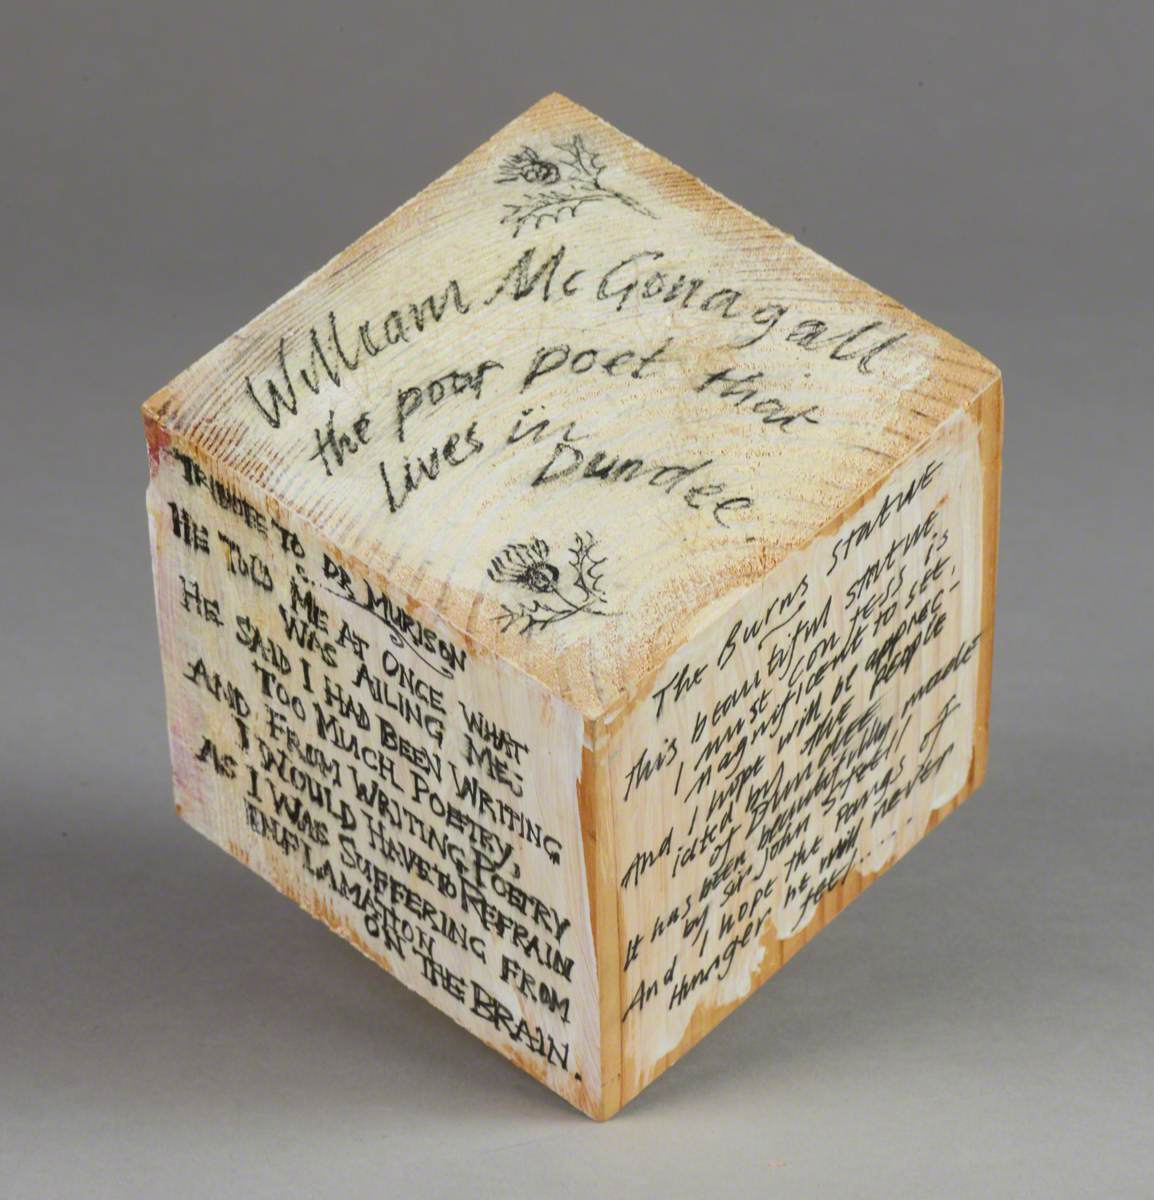 William McGonagall
the poor poet that
lives in
Dundee
TRIBUTE TO DR MURISON
HE TOLD ME AT ONCE WHAT
WAS AILING ME;
HE SAID I HAD BEEN WRITING
TOO MUCH POETRY,
AND FROM WRITING POETRY
I WOULD HAVE TO REFRAIN
AS I WAS SUFFERING FROM
INFLAMATION
ON THE BRAIN.
The Burns Statue
This beautiful statue
I must confess is
Magnificent to see,
And I hope will be apprec-
iated by the people
of Dundee
It has been beautifully made
by Sir John Steell
And I hope the pangs of
Hunger he will never
feel/.....